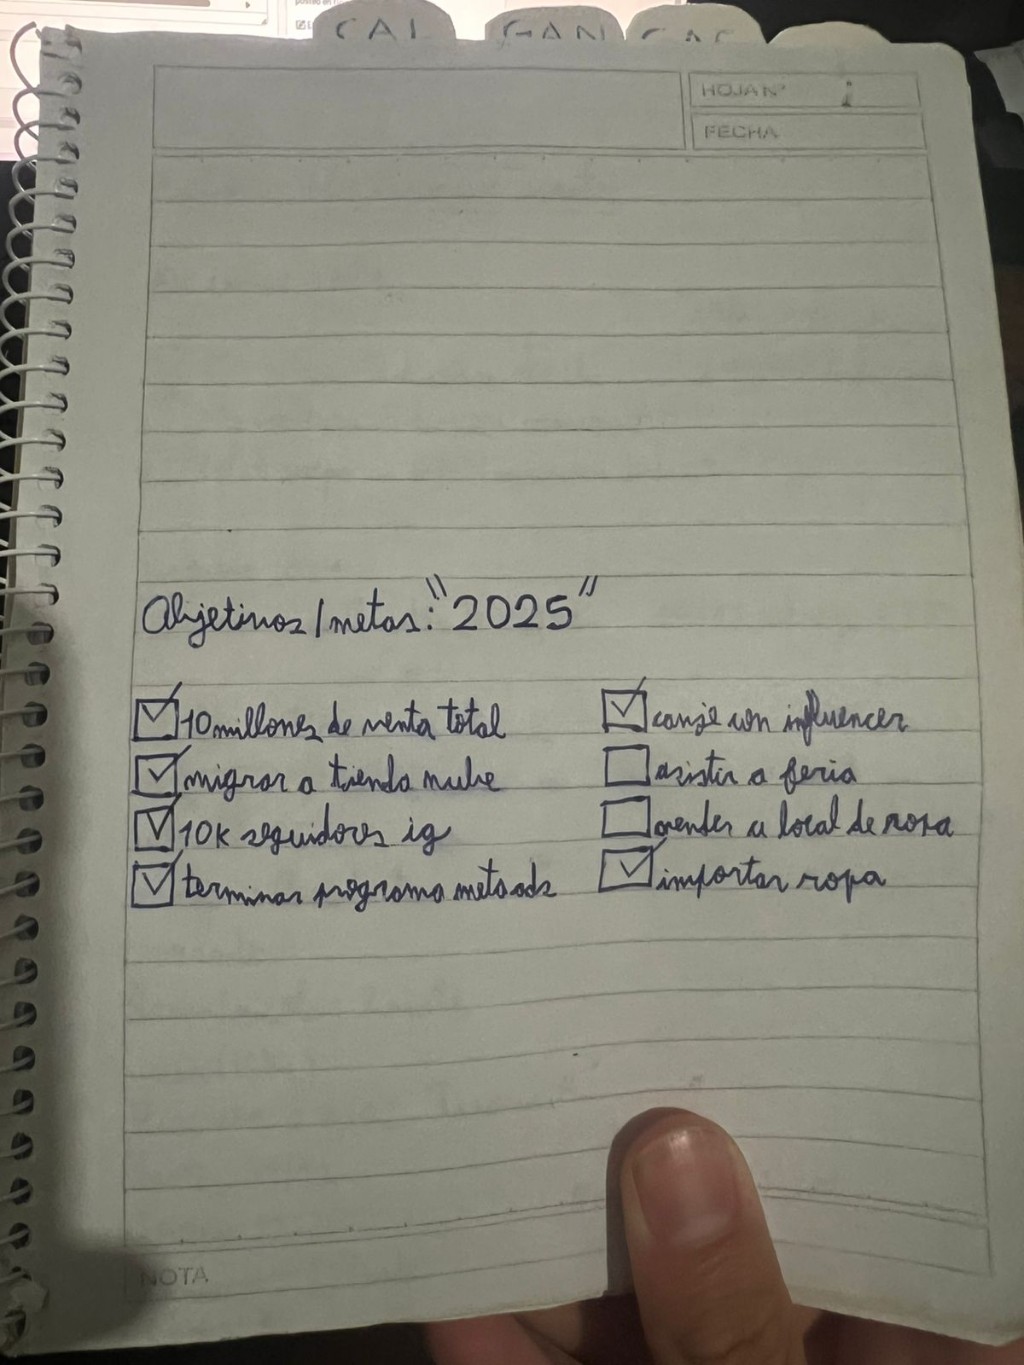 CAL GAN CAC
HOJA Nº 1
FECHA
Objetivos/metas: "2025"
☑ 10 millones de venta total
☑ migrar a tienda nube
☑ 10K seguidores ig
☑ terminar programa metaads
☑ canje con influencer
☐ asistir a feria
☐ vender a local de ropa
☑ importar ropa
NOTA